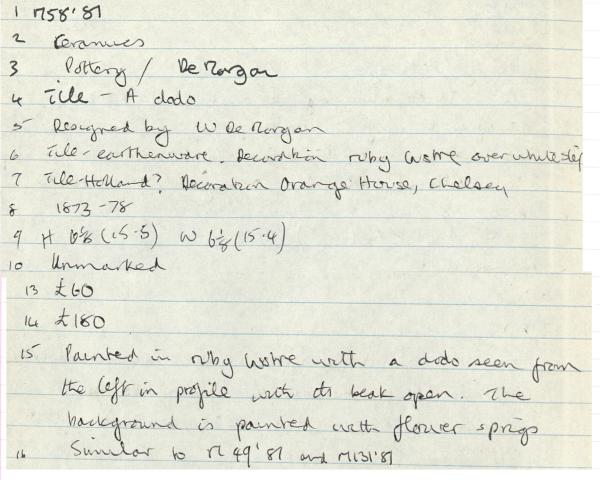 1 M58'87
2 Ceramics
3 Pottery / De Morgan
4 Tile - A dodo
5 Designed by W De Morgan
6 Tile - earthenware. Decoration ruby lustre over white slip
7 Tile - Holland? Decoration Orange House, Chelsea
8 1873-78
9 H 6⅛ (15·5) W 6⅛ (15·4)
10 Unmarked
13 £60
14 £180
15 Painted in ruby lustre with a dodo seen from
the left in profile with its beak open. The
background is painted with flower sprigs
16 Similar to M49'87 and M131'87